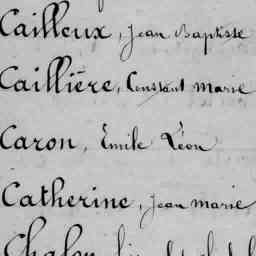 Cailleux, Jean Baptiste
Caillière, Constant Marie
Caron, Émile Léon
Catherine, Jean Marie